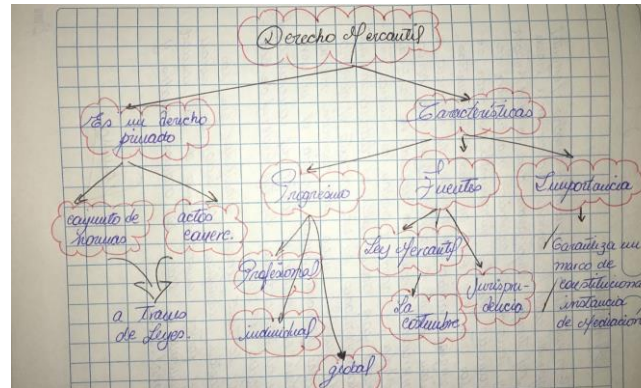 Derecho Mercantil
Es un derecho
privado
Características
conjunto de
Normas
actos
Progresivo
Fuentes
Importancia
Profesional
individual
global
Ley Mercantil
La
costumbre
Jurispru-
dencia
a Traves
de Leyes.
Garantiza un
marco de
constitucional
instancia
de Mediación